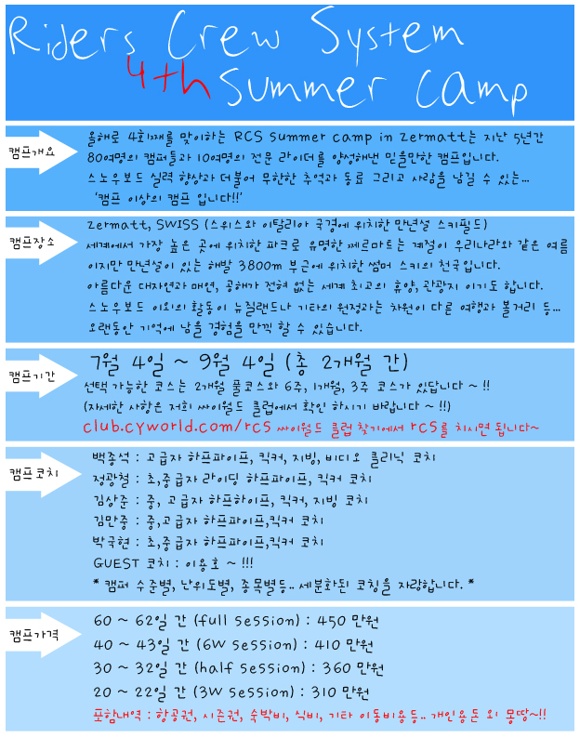 Riders Crew System
4th Summer Camp
캠프개요
올해로 4회째를 맞이하는 RCS summer camp in zermatt는 지난 5년간
80여명의 캠퍼들과 10여명의 전문 라이더를 양성해낸 믿을만한 캠프입니다.
스노우보드 실력 향상과 더불어 무한한 추억과 동료 그리고 사람을 남길 수 있는...
'캠프 이상의 캠프 입니다!!'
캠프장소
zermatt, SWISS (스위스와 이탈리아 국경에 위치한 만년설 스키필드)
세계에서 가장 높은 곳에 위치한 파크로 유명한 쩨르마트는 계절이 우리나라와 같은 여름
이지만 만년설이 있는 해발 3800m 부근에 위치한 썸머 스키의 천국입니다.
아름다운 대자연과 매연, 공해가 전혀 없는 세계 최고의 휴양, 관광지 이기도 합니다.
스노우보드 이외의 활동이 뉴질랜드나 기타의 원정과는 차원이 다른 여행과 볼거리 등...
오랜동안 기억에 남을 경험을 만끽 할 수 있습니다.
캠프기간
7월 4일 ~ 9월 4일 (총 2개월 간)
선택 가능한 코스는 2개월 풀코스와 6주, 1개월, 3주 코스가 있답니다 ~ !!
(자세한 사항은 저희 싸이월드 클럽에서 확인 하시기 바랍니다 ~ !!)
club.cyworld.com/rcs 싸이월드 클럽 찾기에서 rcs를 치시면 됩니다~
캠프코치
백종석 : 고급자 하프파이프, 킥커, 지빙, 비디오 클리닉 코치
정광철 : 초,중급자 라이딩 하프파이프, 킥커 코치
김상준 : 중, 고급자 하프하이프, 킥커, 지빙 코치
김만중 : 중,고급자 하프파이프,킥커 코치
박국현 : 초,중급자 하프파이프,킥커 코치
GUEST 코치 : 이용호 ~ !!!
* 캠퍼 수준별, 난위도별, 종목별등.. 세분화된 코칭을 자랑합니다. *
캠프가격
60 ~ 62일 간 (full session) : 450 만원
40 ~ 43일 간 (6W session) : 410 만원
30 ~ 32일 간 (half session) : 360 만원
20 ~ 22일 간 (3W session) : 310 만원
포함내역 : 항공권, 시즌권, 숙박비, 식비, 기타 이동비용등.. 개인용돈 외 몽땅~!!